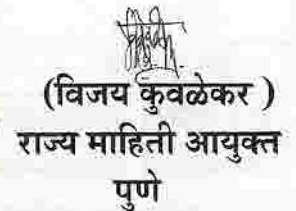 (विजय कुवळेकर )
राज्य माहिती आयुक्त
पुणे